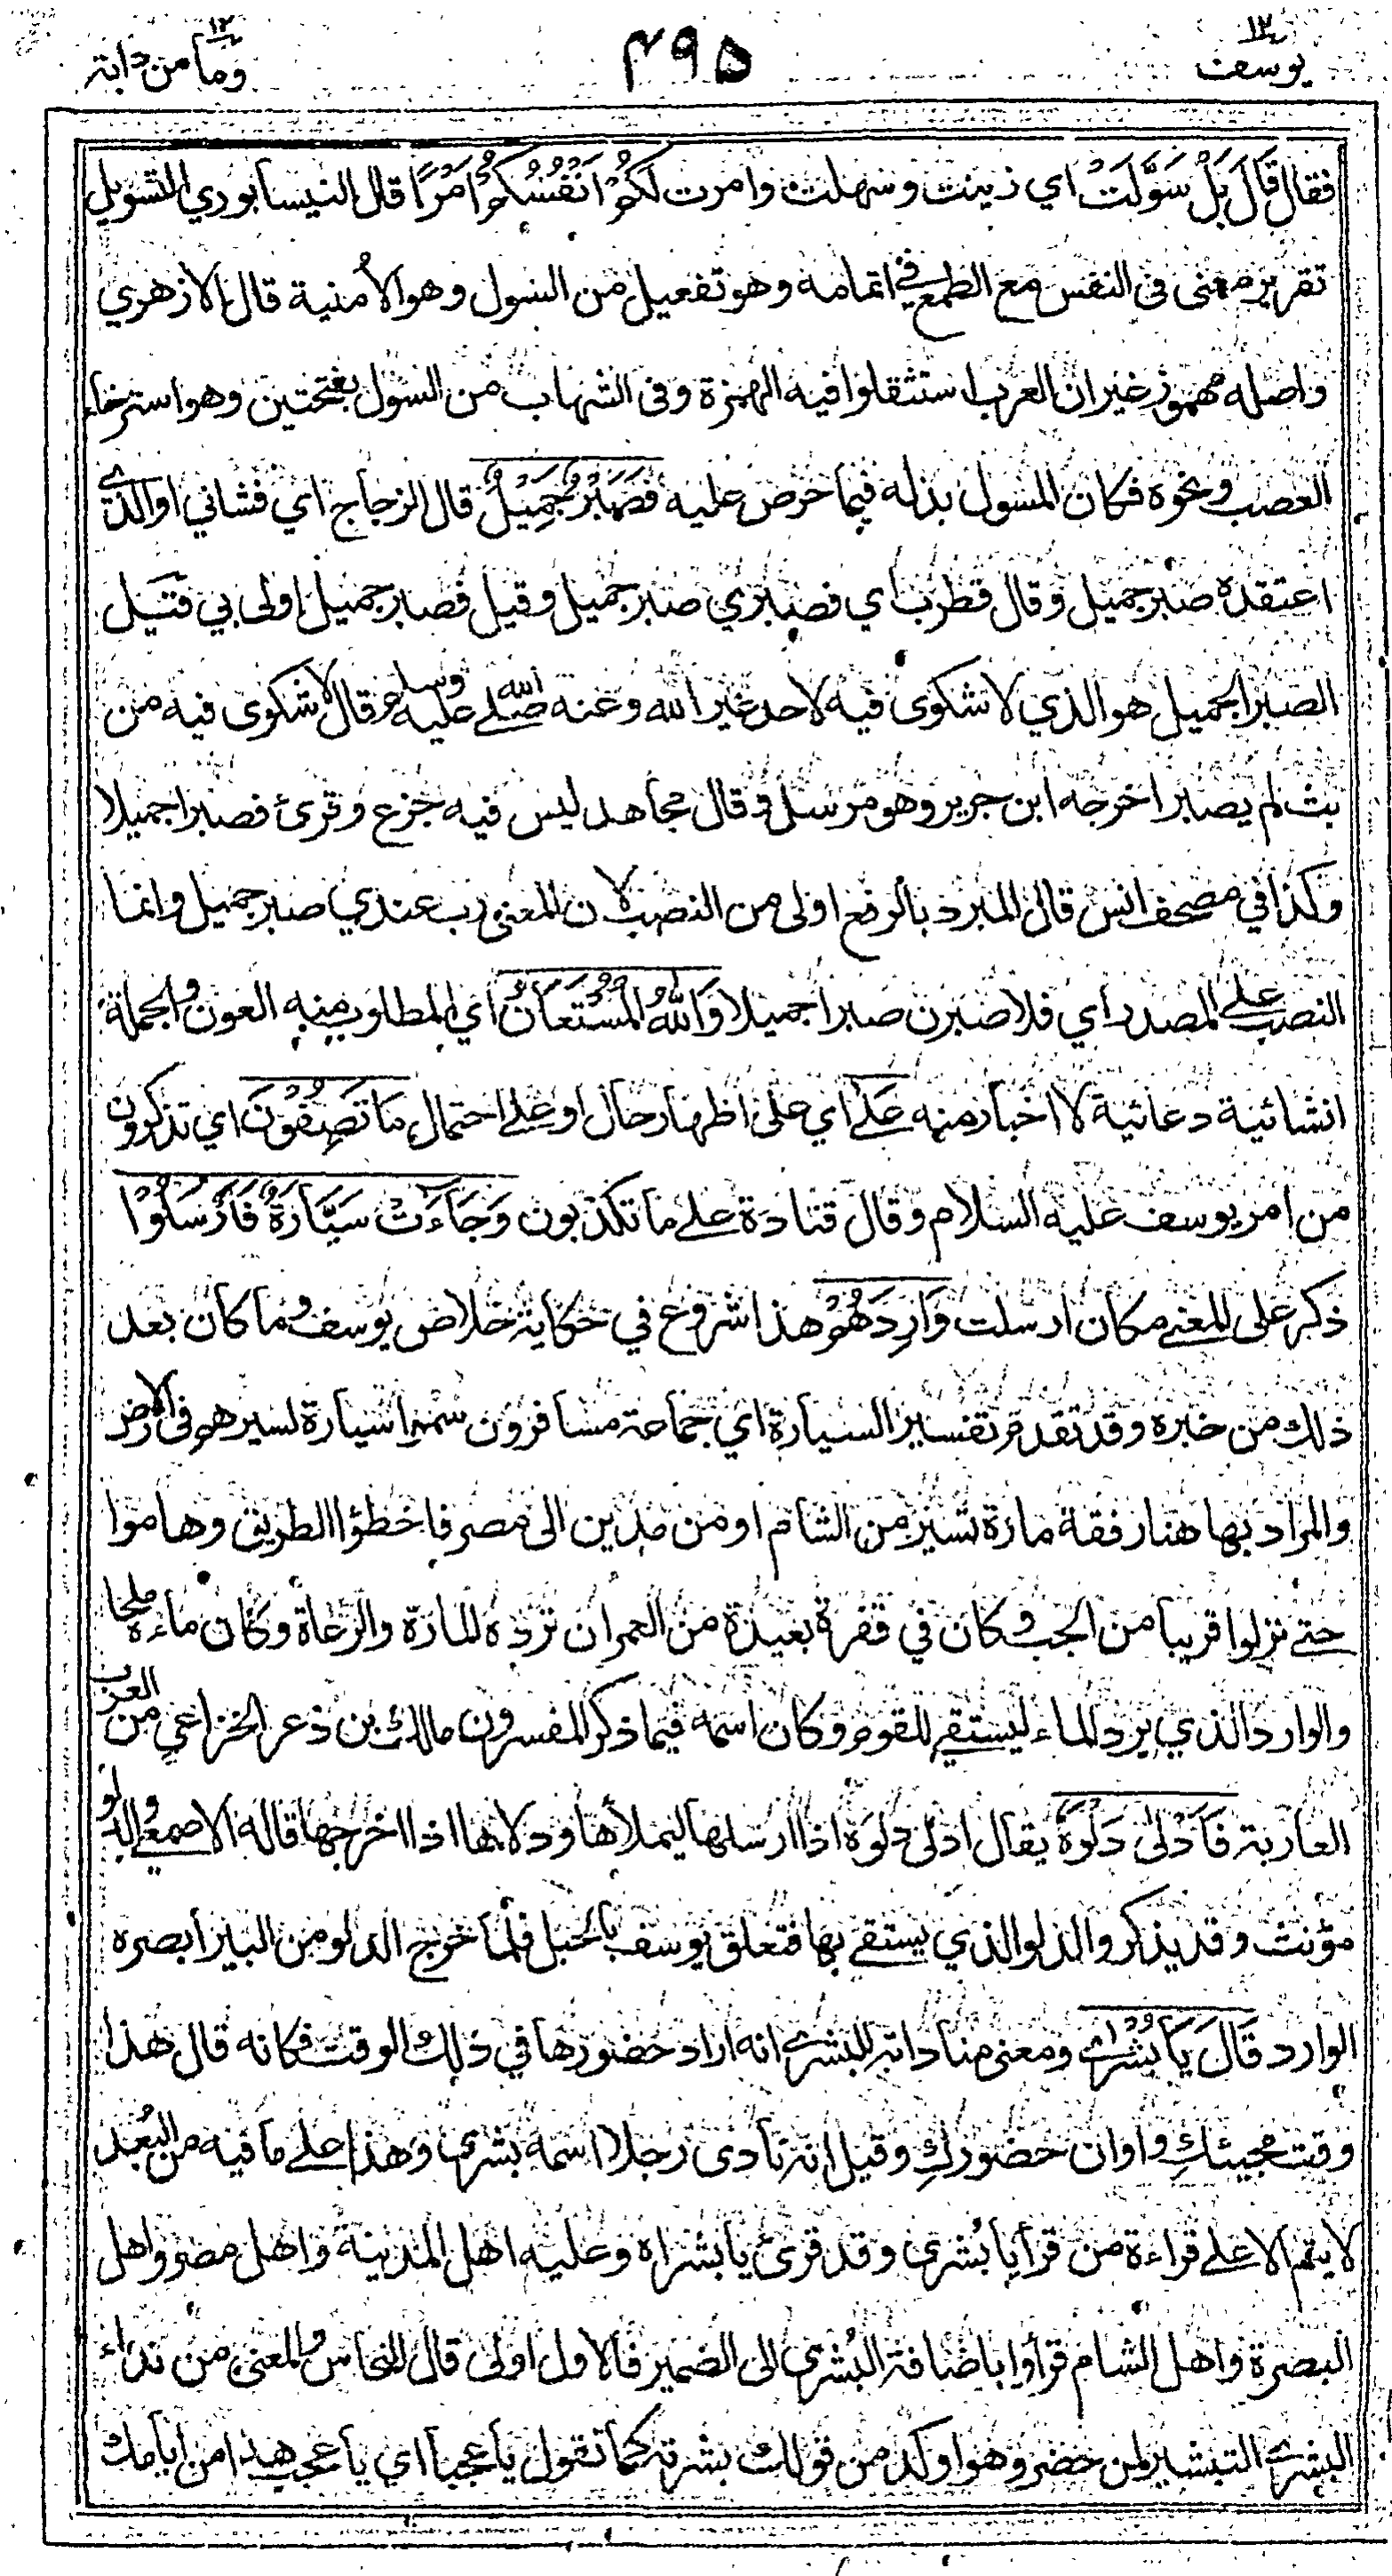 يوسف ١٢
٤٩٥
وما من دابة ١٢
فقال قَالَ بَلْ سَوَّلَتْ اي زينت وسهلت وامرت لَكُمْ اَنْفُسُكُمْ اَمْرًا قال النيسابوري التسويل
تقرير معنى فى النفس مع الطمع في اتمامه وهو تفعيل من السول وهو الأمنية قال الازهري
واصله مهموز غير ان العرب استثقلوا فيه الهمزة وفى الشهاب من السول بفتحتين وهو استرخاء
العصب ونحوه فكان المسول بذله فيما حرص عليه فَصَبْرٌ جَمِيْلٌ قال الزجاج اي فشاني او الذي
اعتقده صبر جميل وقال قطرب اي فصبري صبر جميل وقيل فصبر جميل اولى بي قيل
الصبر الجميل هو الذي لا شكوى فيه لاحد غير الله وعنه صلى الله عليه وسلم قال لا شكوى فيه من
بث لم يصبر اخرجه ابن جرير وهو مرسل وقال مجاهد ليس فيه جزع وقرئ فصبرا جميلا
وكذا في مصحف انس قال المبرد بالرفع اولى من النصب لان المعنى رب عندي صبر جميل وانما
النصب على المصدر اي فلاصبرن صبرا جميلا وَاللهُ الْمُسْتَعَانُ اي المطلوب منه العون والجملة
انشائية دعائية لا اخبار منه عَلٰى اي على اظهار حال او على احتمال مَا تَصِفُوْنَ اي تذكرون
من امر يوسف عليه السلام وقال قتادة على ما تكذبون وَجَاءَتْ سَيَّارَةٌ فَاَرْسَلُوْا
ذكر على المعنى مكان ارسلت وَارِدَهُمْ هذا شروع في حكاية خلاص يوسف وما كان بعد
ذلك من خبره وقد تقدم تفسير السيارة اي جماعة مسافرون سموا سيارة لسيرهم فى الارض
والمراد بها هنا رفقة مارة تسير من الشام او من مدين الى مصر فاخطؤا الطريق وهاموا
حتى نزلوا قريبا من الجب وكان في قفرة بعيدة من العمران ترده المارة والرعاة وكان ماءه ملحا
والوارد الذي يرد الماء ليستقي للقوم وكان اسمه فيما ذكر المفسرون مالك بن ذعر الخزاعي من العرب
العاربة فَاَدْلٰى دَلْوَهٗ يقال ادلى دلوه اذا ارسلها ليملأها ودلاها اذا اخرجها قاله الاصمعي والدلو
مؤنث وقد يذكر والدلو الذي يستقى بها فتعلق يوسف بالحبل فلما خرج الدلو من البير أبصره
الوارد قَالَ يَا بُشْرٰى ومعنى مناداته للبشرى انه اراد حضورها في ذلك الوقت فكانه قال هذا
وقت مجيئكِ واوان حضوركِ وقيل انه نادى رجلا اسمه بشرى وهذا على ما فيه من البُعد
لا يتم الا على قراءة من قرأ يا بُشرى وقد قرئ يا بشراه وعليه اهل المدينة واهل مصر واهل
البصرة واهل الشام قرأوا باضافة البُشرى الى الضمير فالاول اولى قال النحاس والمعنى من نداء
البشرى التبشير لمن حضر وهو اوكد من قولك بشرته كما تقول يا عجبا اي يا عجب هذا من ايامك